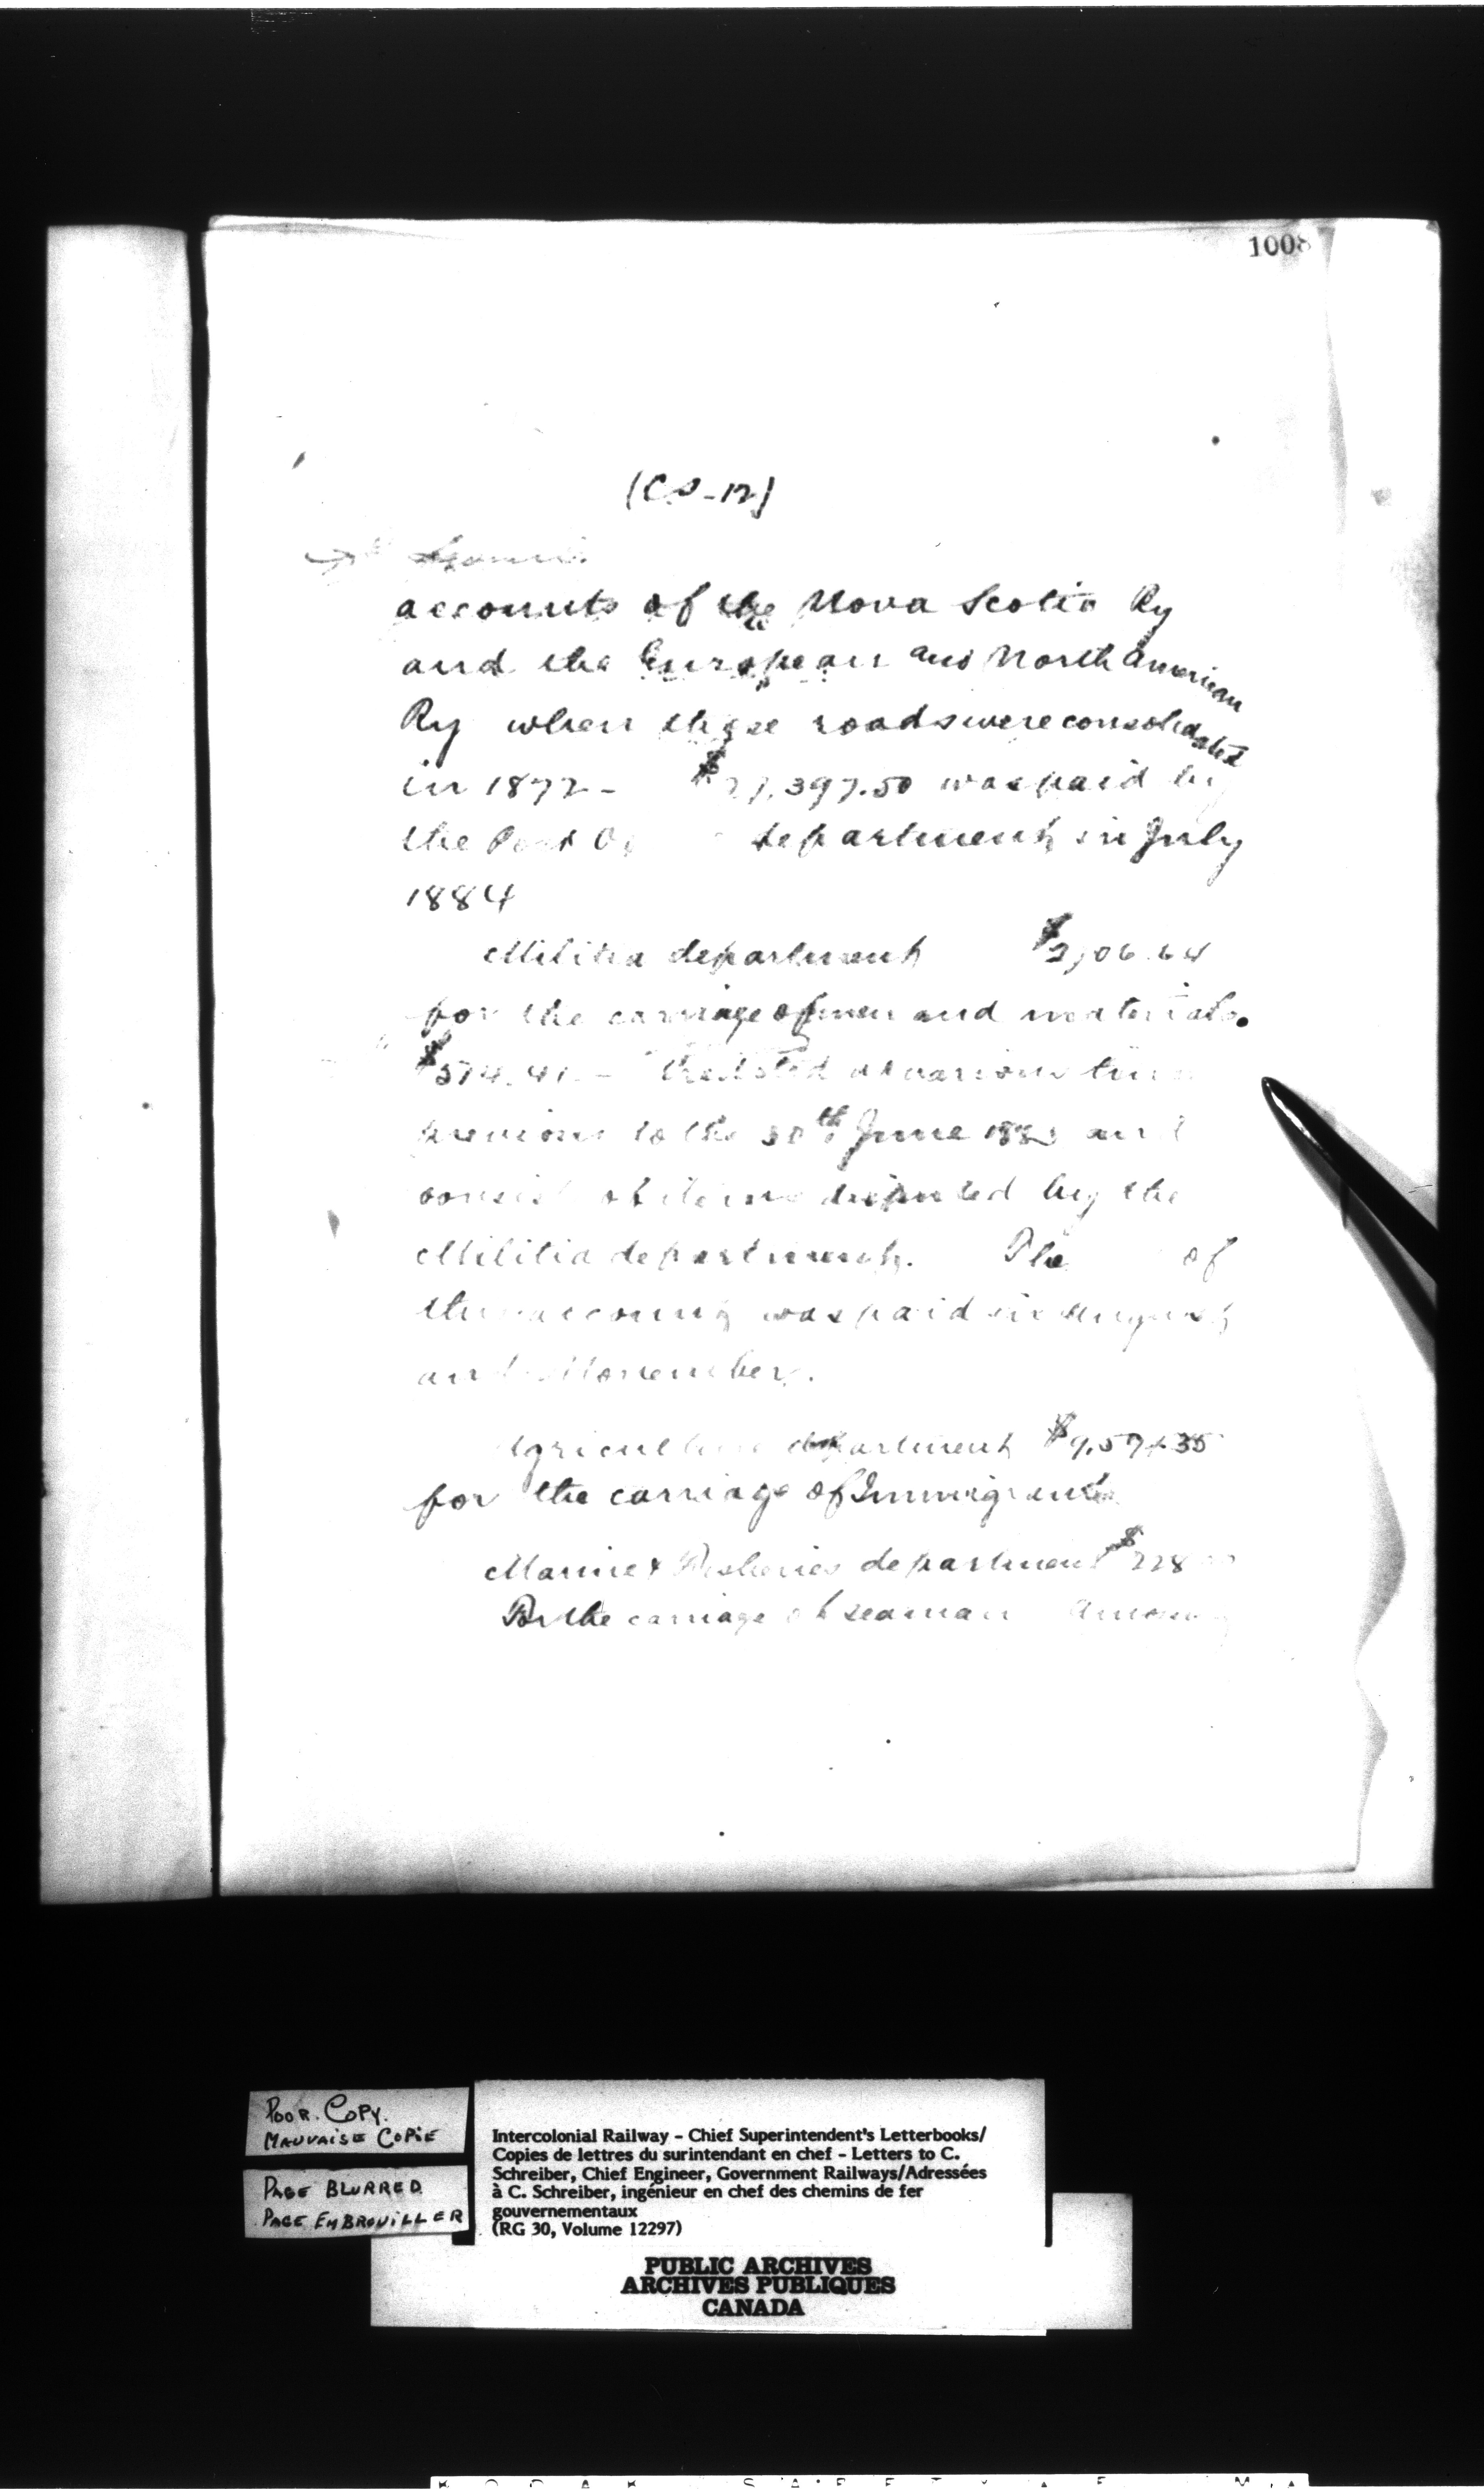 1008
(CS-12)
accounts of the Nova Scotia Ry
and the European and North American
Ry when these roads were consolidated
in 1872 - $27,397.50 was paid by
the Post department in July
1884
Militia department
for the carriage of men and materials.
$574.41 - at various
previous to the 30th June and
of items disputed by the
Militia department. The of
account was paid in August
and November.
Agriculture department
for the carriage of Immigrants
Marine & Fisheries department $228
For the carriage of seaman
POOR COPY.
MAUVAISE COPIE
PAGE BLURRED
PAGE EMBROUILLER
Intercolonial Railway – Chief Superintendent's Letterbooks/
Copies de lettres du surintendant en chef – Letters to C.
Schreiber, Chief Engineer, Government Railways/Adressées
à C. Schreiber, ingénieur en chef des chemins de fer
gouvernementaux
(RG 30, Volume 12297)
PUBLIC ARCHIVES
ARCHIVES PUBLIQUES
CANADA